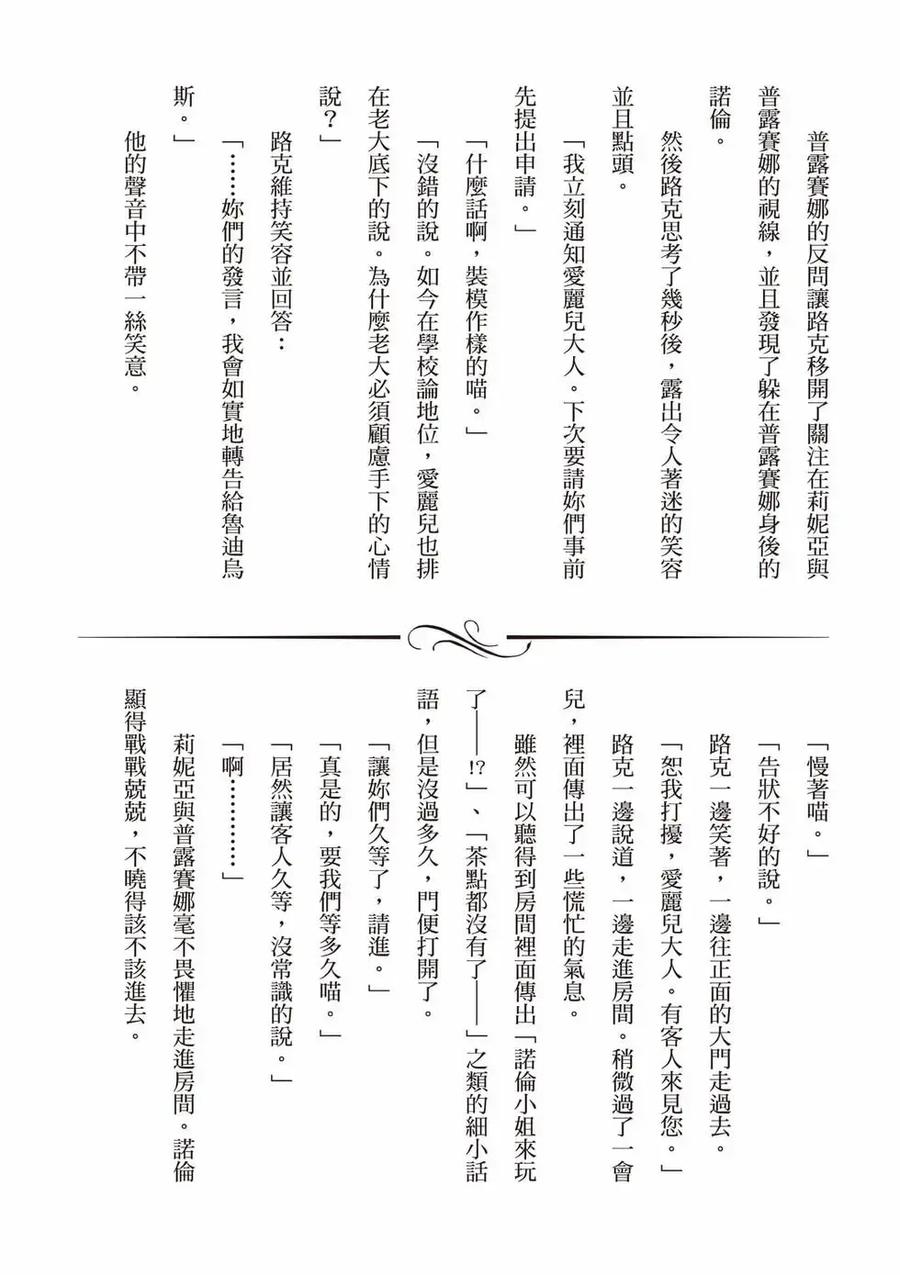 普露賽娜的反問讓路克移開了關注在莉妮亞與
普露賽娜的視線，並且發現了躲在普露賽娜身後的
諾倫。
然後路克思考了幾秒後，露出令人著迷的笑容
並且點頭。
「我立刻通知愛麗兒大人。下次要請妳們事前
先提出申請。」
「什麼話啊，裝模作樣的喵。」
「沒錯的說。如今在學校論地位，愛麗兒也排
在老大底下的說。為什麼老大必須顧慮手下的心情
說？」
路克維持笑容並回答：
「……妳們的發言，我會如實地轉告給魯迪烏
斯。」
他的聲音中不帶一絲笑意。
「慢著喵。」
「告狀不好的說。」
路克一邊笑著，一邊往正面的大門走過去。
「恕我打擾，愛麗兒大人。有客人來見您。」
路克一邊說道，一邊走進房間。稍微過了一會
兒，裡面傳出了一些慌忙的氣息。
雖然可以聽得到房間裡面傳出「諾倫小姐來玩
了——!?」、「茶點都沒有了——」之類的細小話
語，但是沒過多久，門便打開了。
「讓妳們久等了，請進。」
「真是的，要我們等多久喵。」
「居然讓客人久等，沒常識的說。」
「啊…………」
莉妮亞與普露賽娜毫不畏懼地走進房間。諾倫
顯得戰戰兢兢，不曉得該不該進去。